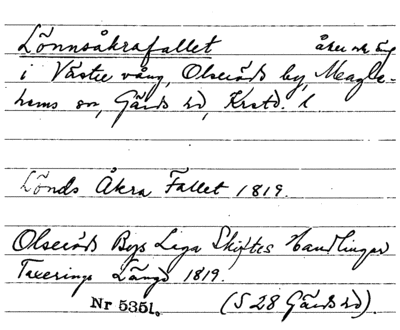 Lönnsåkrafallet åker ok äng
i Västre vång, Olseröds by, Maglehems sn, Gärds hd, Krstd. l
Lönds Åkra Fallet 1819.
Olseröds Bys Laga Skiftes Handlingar
Taxerings Längd 1819.
Nr 5351. (S 28 Gärds hd).